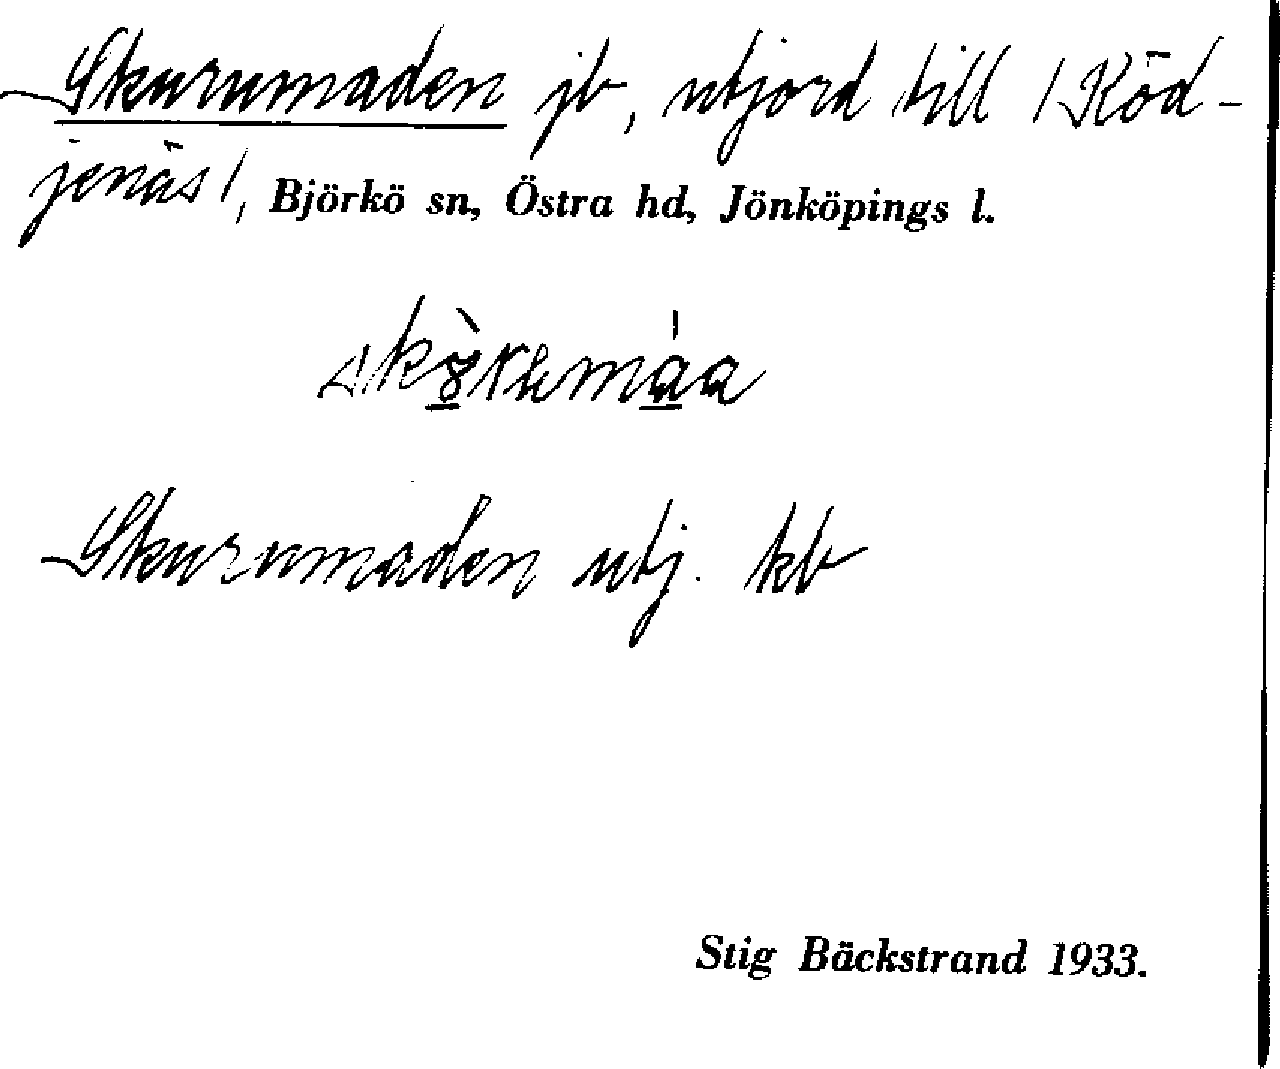 Skurumaden jb, utjord till /Köd-
jenäs/, Björkö sn, Östra hd, Jönköpings l.
Skurumaden utj. kb
Stig Bäckstrand 1933.